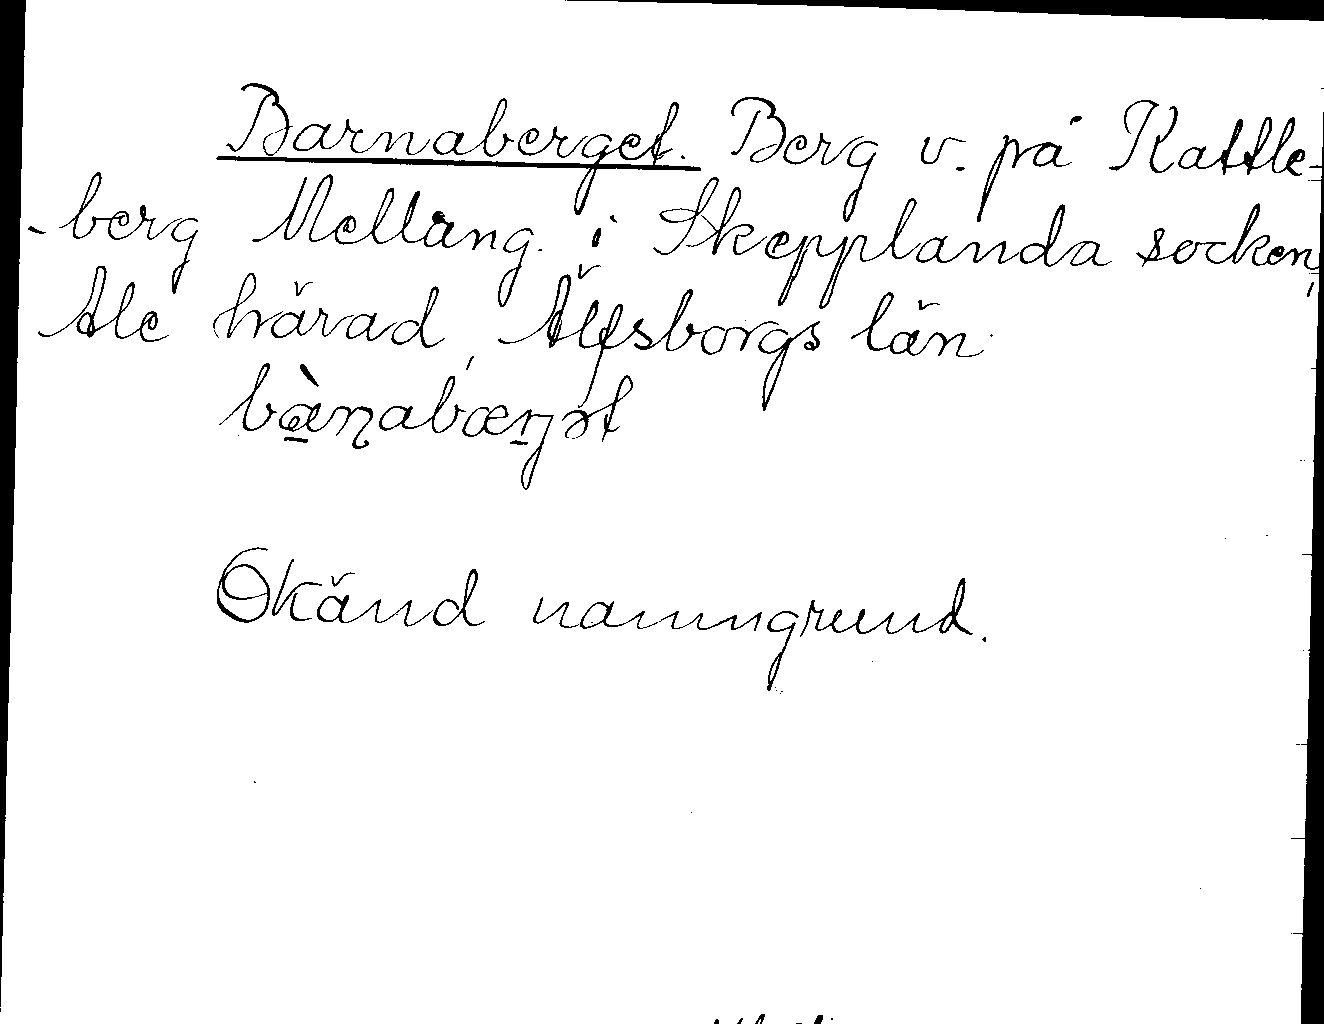 Barnaberget. Berg v. på Kattle-
-berg Mellang. i Skepplanda socken,
Ale härad, Älfsborgs län.
Okänd namngrund.